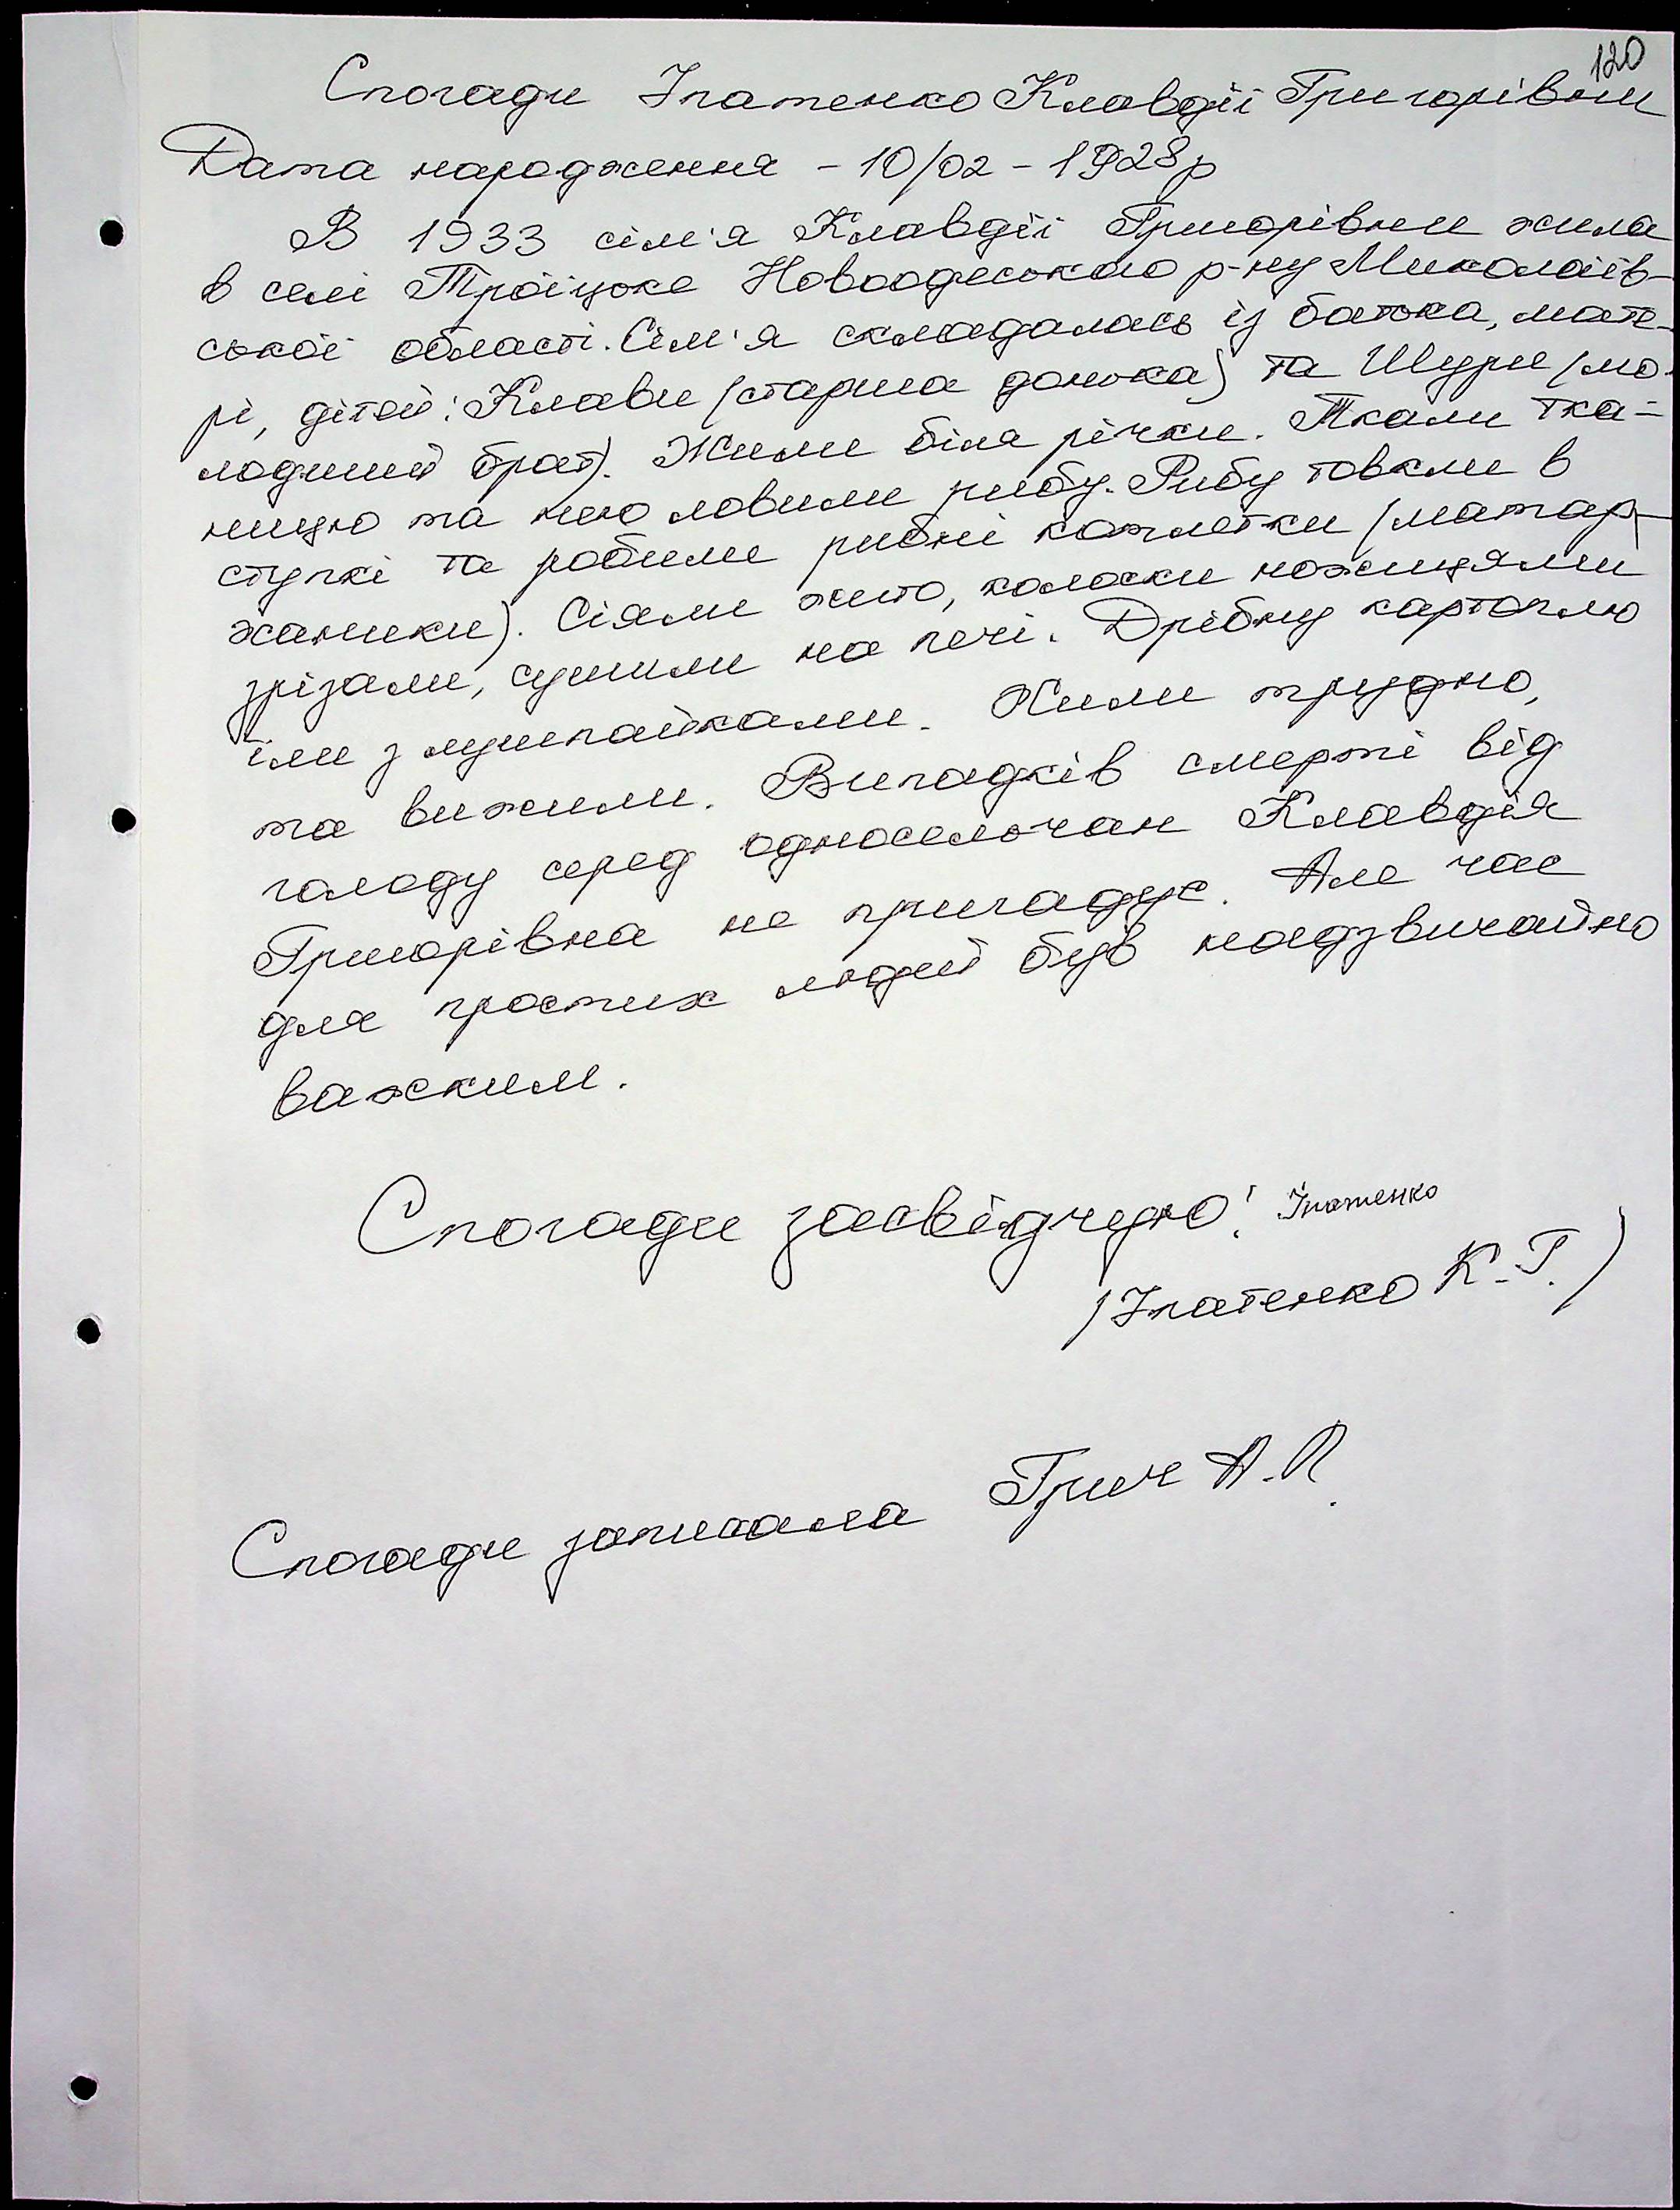 120
Спогади Ігнатенко Клавдії Григорівни
Дата народження - 10/02 - 1928р
В 1933 сім'я Клавдії Григорівни жила
в селі Троїцьке Новоодеського р-ну Миколаїв-
ської області. Сім'я складалась із батька, мате-
рі, дітей: Клави (старша донька) та Шури (мо-
лодший брат). Жили біля річки. Ткали тка-
ницю та нею ловили рибу. Рибу товкли в
ступкі та робили рибні котлетки (матар-
жаники). Сіяли жито, колоски ножицями
зрізали, сушили на печі. Дрібну картоплю
їли з лушпайками. Жили трудно,
та вижили. Випадків смерті від
голоду серед односельчан Клавдія
Григорівна не пригадує. Але час
для простих людей був надзвичайно
важким.
Спогади засвідчую: Ігнатенко
(Ігнатенко К.Г.)
Спогади записала Грич А.П.